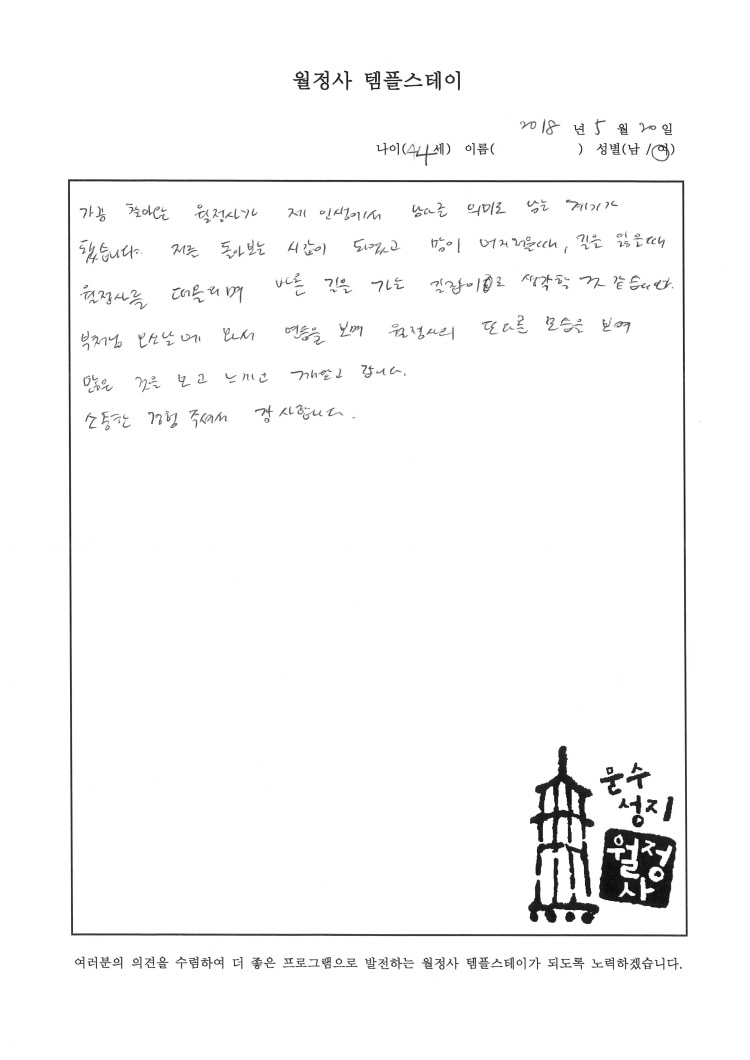 월정사 템플스테이
2018 년 5 월 20 일
나이(44세) 이름( ) 성별(남 / 여)
가끔 찾아왔던 월정사가 제 인생에서 남다른 의미로 남는 계기가
됐습니다. 저를 돌아보는 시간이 되었고 맘이 어지러울때, 길을 잃을때
월정사를 떠올리며 바른 길을 가는 길잡이로 생각할 것 같습니다.
부처님 오신날에 와서 연등을 보며 월정사의 또다른 모습을 보며
많은 것을 보고 느끼고 깨닫고 갑니다.
소중한 경험 주셔서 감사합니다.
문수
성지
월정
사
여러분의 의견을 수렴하여 더 좋은 프로그램으로 발전하는 월정사 템플스테이가 되도록 노력하겠습니다.